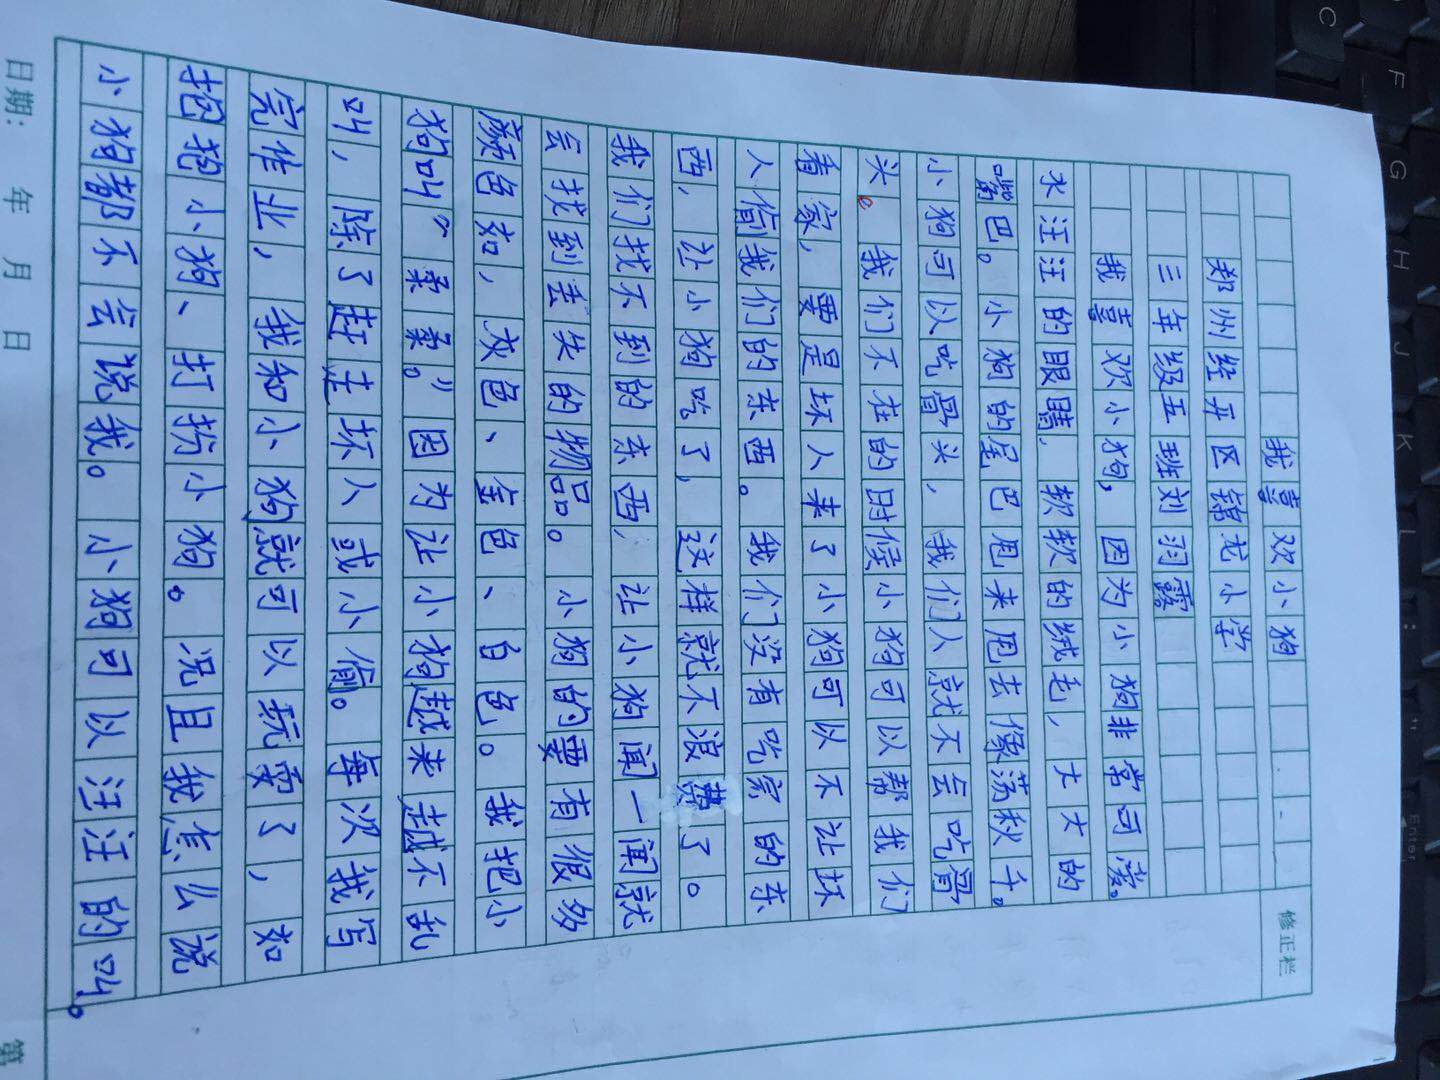 我喜欢小狗
郑州经开区锦龙小学
三年级五班刘羽露
我喜欢小狗，因为小狗非常可爱。
水汪汪的眼睛，软软的绒毛，大大的
嘴巴。小狗的尾巴甩来甩去像荡秋千。
小狗可以吃骨头，我们人就不会吃骨
头。我们不在的时候小狗可以帮我们
看家，要是坏人来了小狗可以不让坏
人偷我们的东西。我们没有吃完的东
西，让小狗吃了，这样就不浪费了。
我们找不到的东西，让小狗闻一闻就
会找到丢失的物品。小狗的要有很多
颜色如，灰色、金色、白色。我把小
狗叫“柔柔。”因为让小狗越来越不乱
叫，除了赶走坏人或小偷。每次我写
完作业，我和小狗就可以玩耍了，如
抱抱小狗、打扮小狗。况且我怎么说
小狗都不会说我。小狗可以汪汪的叫。
修正栏
日期： 年 月 日
第
C
F
G
H
J
K
L
Enter